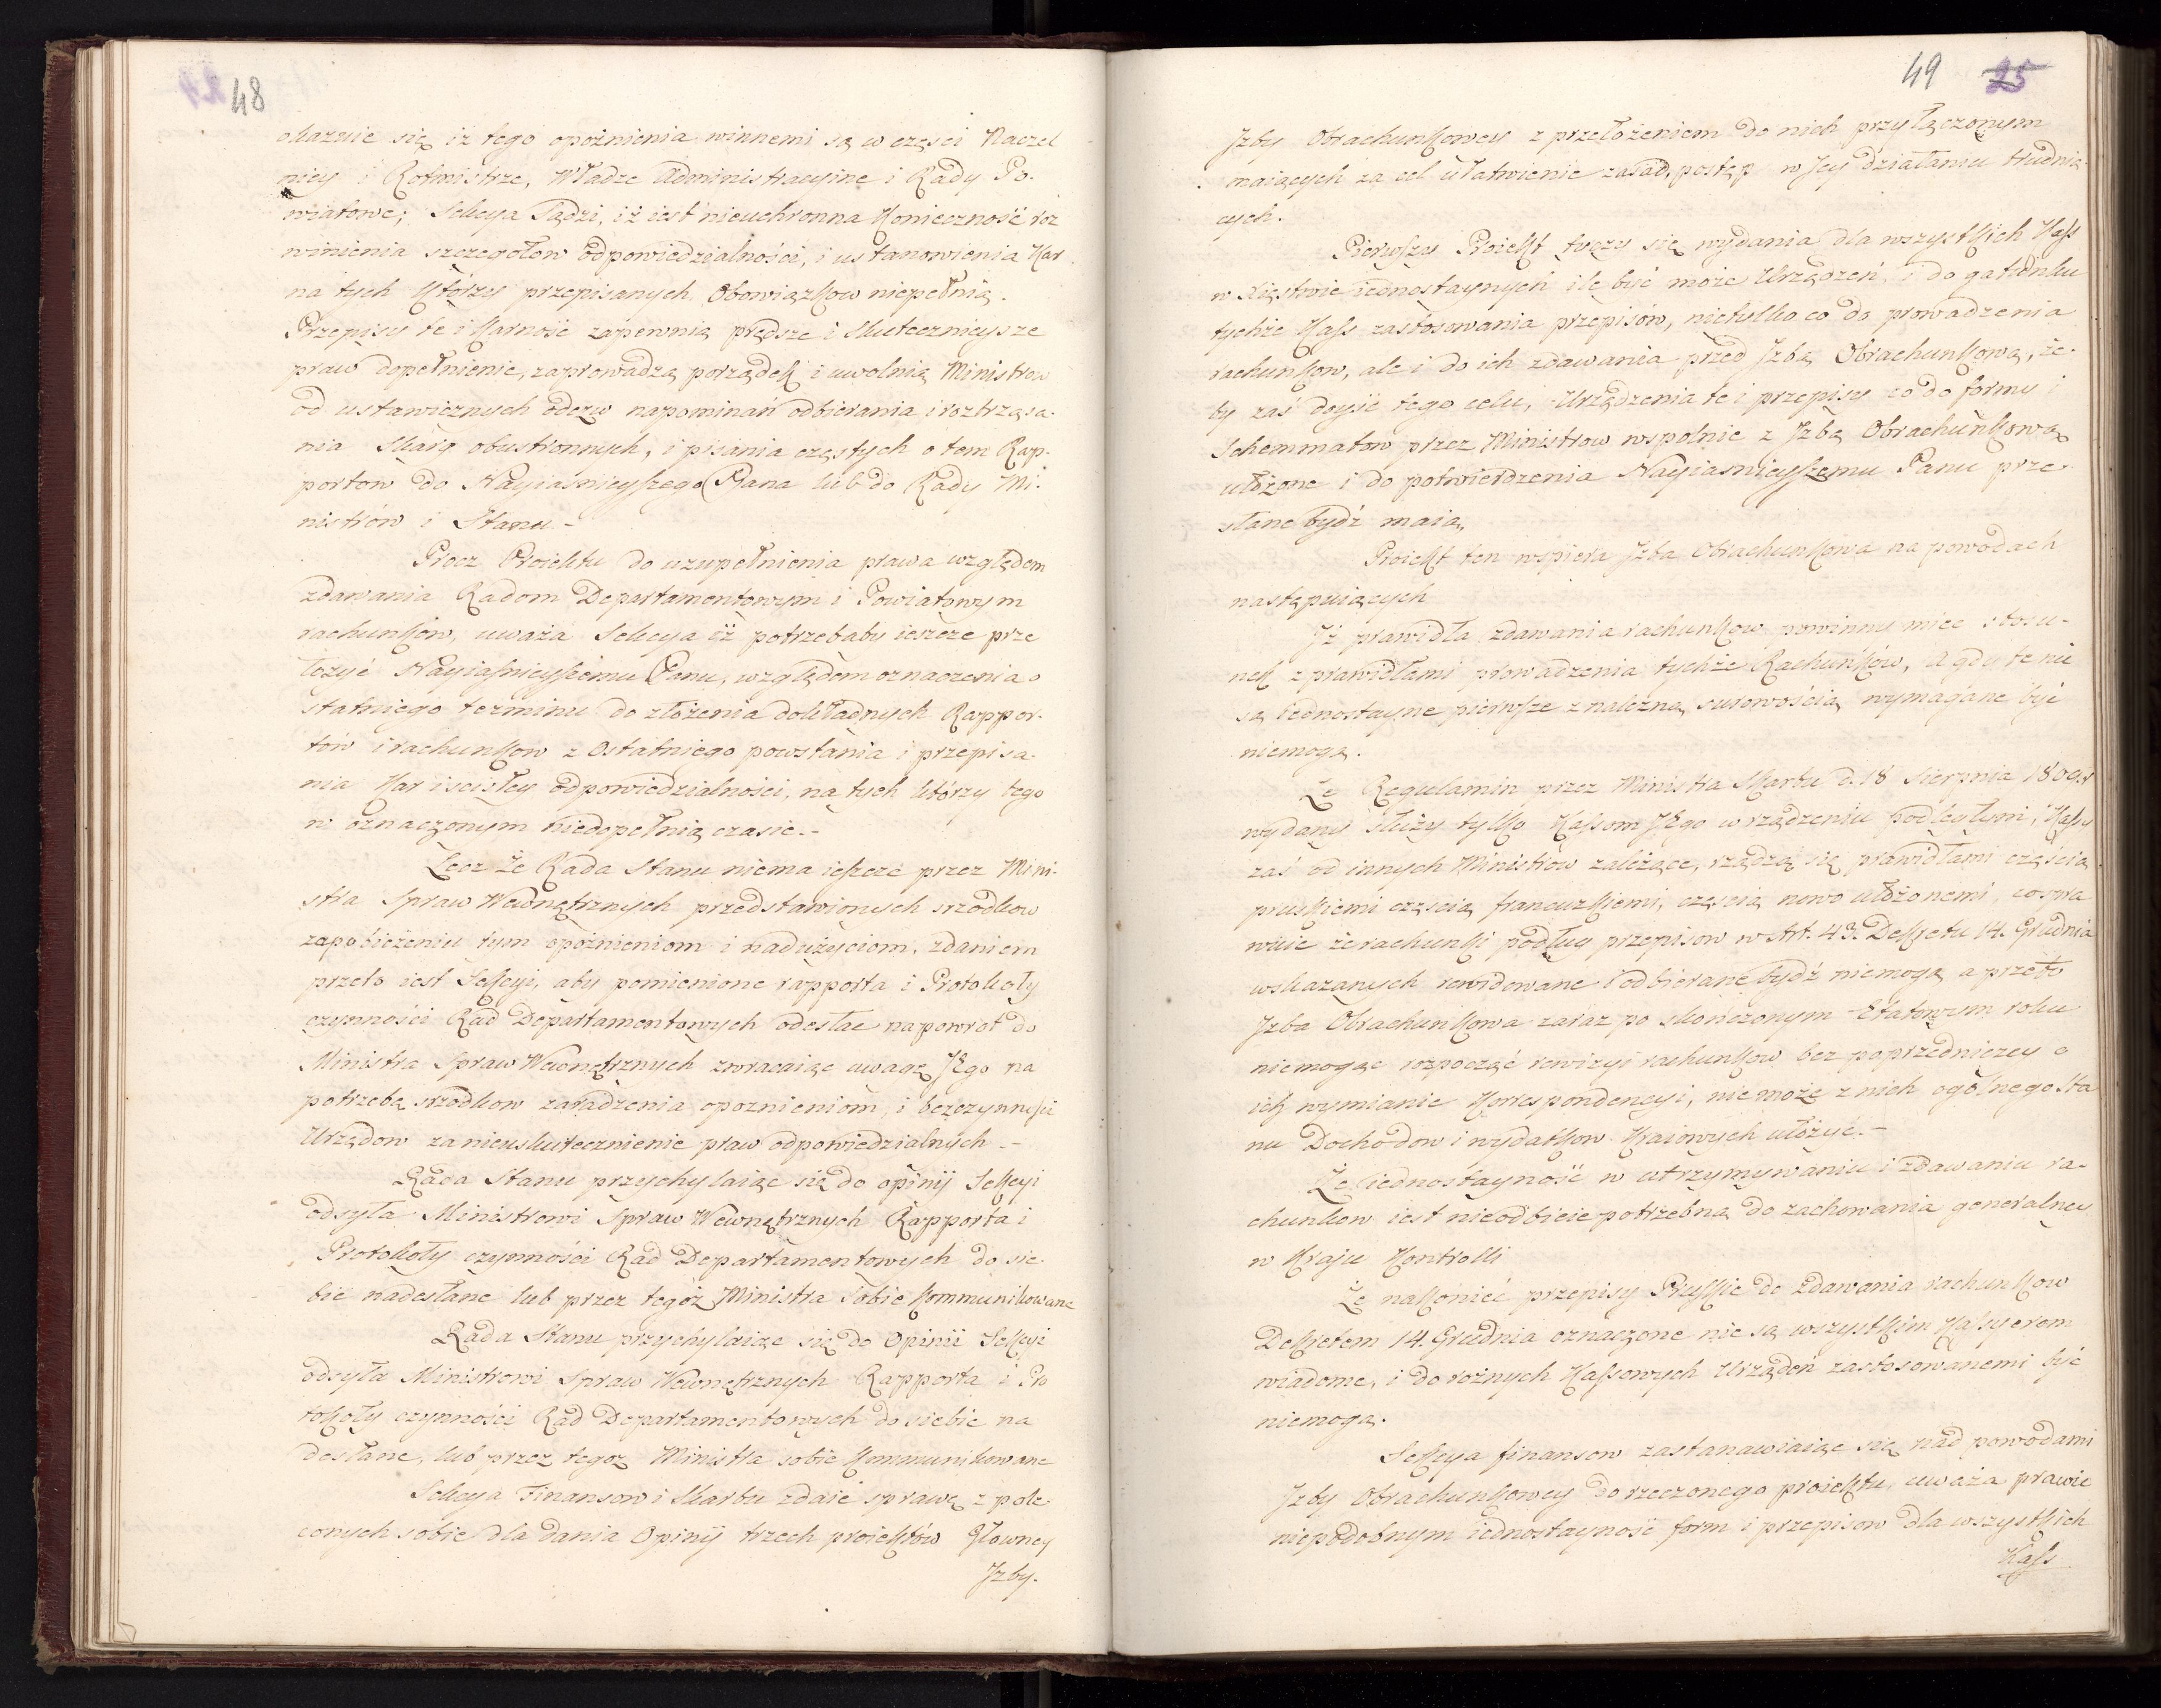 48
okazuie się iż tego opoźnienia winnemi są w części Naczel
nicy i Rotmistrze, Władze Administracyine i Rady Po-
wiatowe; Sekcya sądzi, iż iest nieuchronna konieczność roz
winienia szczegołow odpowiedzialności, i ustanowienia Kar
na tych którzy przepisanych Obowiązkow niepełnią.
Przepisy te i karność zapewnią prędsze i skutecznieysze
praw dopełnienie, zaprowadzą porządek i uwolnią Ministrow
od ustawicznych odezw napominań odbierania i roztrząsa-
nia skarg obustronnych, i pisania częstych o tem Rap-
portow do Nayiaśnieyszego Pana lub do Rady Mi-
nistrów i Stanu.-
Procz Proiektu do uzupełnienia prawa względem
zdawania Radom Departamentowym i Powiatowym
rachunkow, uważa Sekcya iż potrzebaby ieszcze prze
łożyć Nayiaśnieyszemu Panu, względem oznaczenia o
statniego terminu do złożenia dokładnych Rappor-
tów i rachunkow z Ostatniego powstania i przepisa-
nia Kar i scisłey odpowiedzialności, na tych którzy tego
w oznaczonym niedopełnią czasie.-
Lecz że Rada Stanu niema ieszcze przez Mini-
stra Spraw Wewnętrznych przedstawionych srzodkow
zapobieżeniu tym opóźnieniom i nadużyciom, zdaniem
przeto iest Sekcyi, aby pomienione rapporta i Protokoły
czynności Rad Departamentowych odesłac napowrot do
Ministra Spraw Wewnętrznych zwracaiąc uwagę Jego na
potrzebę srzodkow zaradzenia opoznieniom, i bezczynności
Urzędow za nieuskutecznienie praw odpowiedzialnych.-
Rada Stanu przychylaiąc się do opinij Sekcyi
odsyła Ministrowi Spraw Wewnętrznych Rapporta i
Protokoły czynności Rad Departamentowych do sie-
bie nadesłane lub przez tegoż Ministra sobie kommunikowane
Rada Stanu przychylaiąc się do Opinii Sekcyi
odsyła Ministrowi Spraw Wewnętrznych Rapporta i Pro
tokoły czynności Rad Departamentowych do siebie na
desłane, lub przez tegoz Ministra sobie kommunikowane
Sekcya Finansow i Skarbu zdaie sprawę z pole-
conych sobie dla dania Opinij trzech proiektów Głowney
Jzby.
49 25
Jzby Obrachunkowey z przełożeniem do nich przyłączonym
maiących za cel ułatwienie zasad, postęp w Jey działaniu trudnią-
cych.
Pierwszy Proiekt tyczy się wydania dla wszystkich Kass
w Xięstwie iednostaynych ile być może Urządzeń, i do gatunku
tychże Kass zastosowania przepisów, nietylko co do prowadzenia
rachunkow, ale i do ich zdawania przed Jzbą Obrachunkową, że-
by zaś doyść tego celu, Urządzenia te i przepisy co do formy i
Schemmatow przez Ministrow wspolnie z Jzbą Obrachunkową
ułożone i do potwierdzenia Nayiasnieyszemu Panu prze-
słane bydź maią,
Proiekt ten wspiera Jzba Obrachunkowa na powodach
następuiących
Jż prawidła zdawania rachunkow powinny miec stosu-
nek z prawidłami prowadzenia tychże Rachunków, a gdy te nie
są iednostayne pierwsze z należną surowością wymagane być
niemogą.
Że Regulamin przez Ministra Skarbu d. 18 Sierpnia 1808 r
wydany służy tylko Kassom Jego w rządzeniu podległemi, Kassy
zaś od innych Ministrow zależące, rządzą się prawidłami częścią
pruskiemi częscią francuzkiemi, częscią nowo ułożonemi, co spra
wuie że rachunki podług przepisow w Art. 43. Dekretu 14. Grudnia
wskazanych rewidowane i odbierane bydź niemogą a przeto
Jzba Obrachunkowa zaraz po skończonym Etatowym roku
niemogąc rozpocząć rewizyi rachunkow bez poprzedniczey o
ich wymianie Korrespondencyi, nie może z nich ogólnego Sta
nu Dochodow i wydatkow Kraiowych ułożyć.-
Że iednostayność w utrzymywaniu i zdawaniu ra-
chunkow iest nieodbicie potrzebną do zachowania generalney
w Kraju Kontrolli
Że nakoniéc przepisy Pruskie do zdawania rachunkow
Dekretem 14. Grudnia oznaczone nie są wszystkim Kassyerom
wiadome, i do rożnych Kassowych Urządeń zastosowanemi być
niemogą.
Sekcya finansow zastanawiaiąc się nad powodami
Jzby Obrachunkowey do rzeczonego proiektu, uważa prawie
niepodobnym iednostayność form i przepisow dla wszystkich
Kass